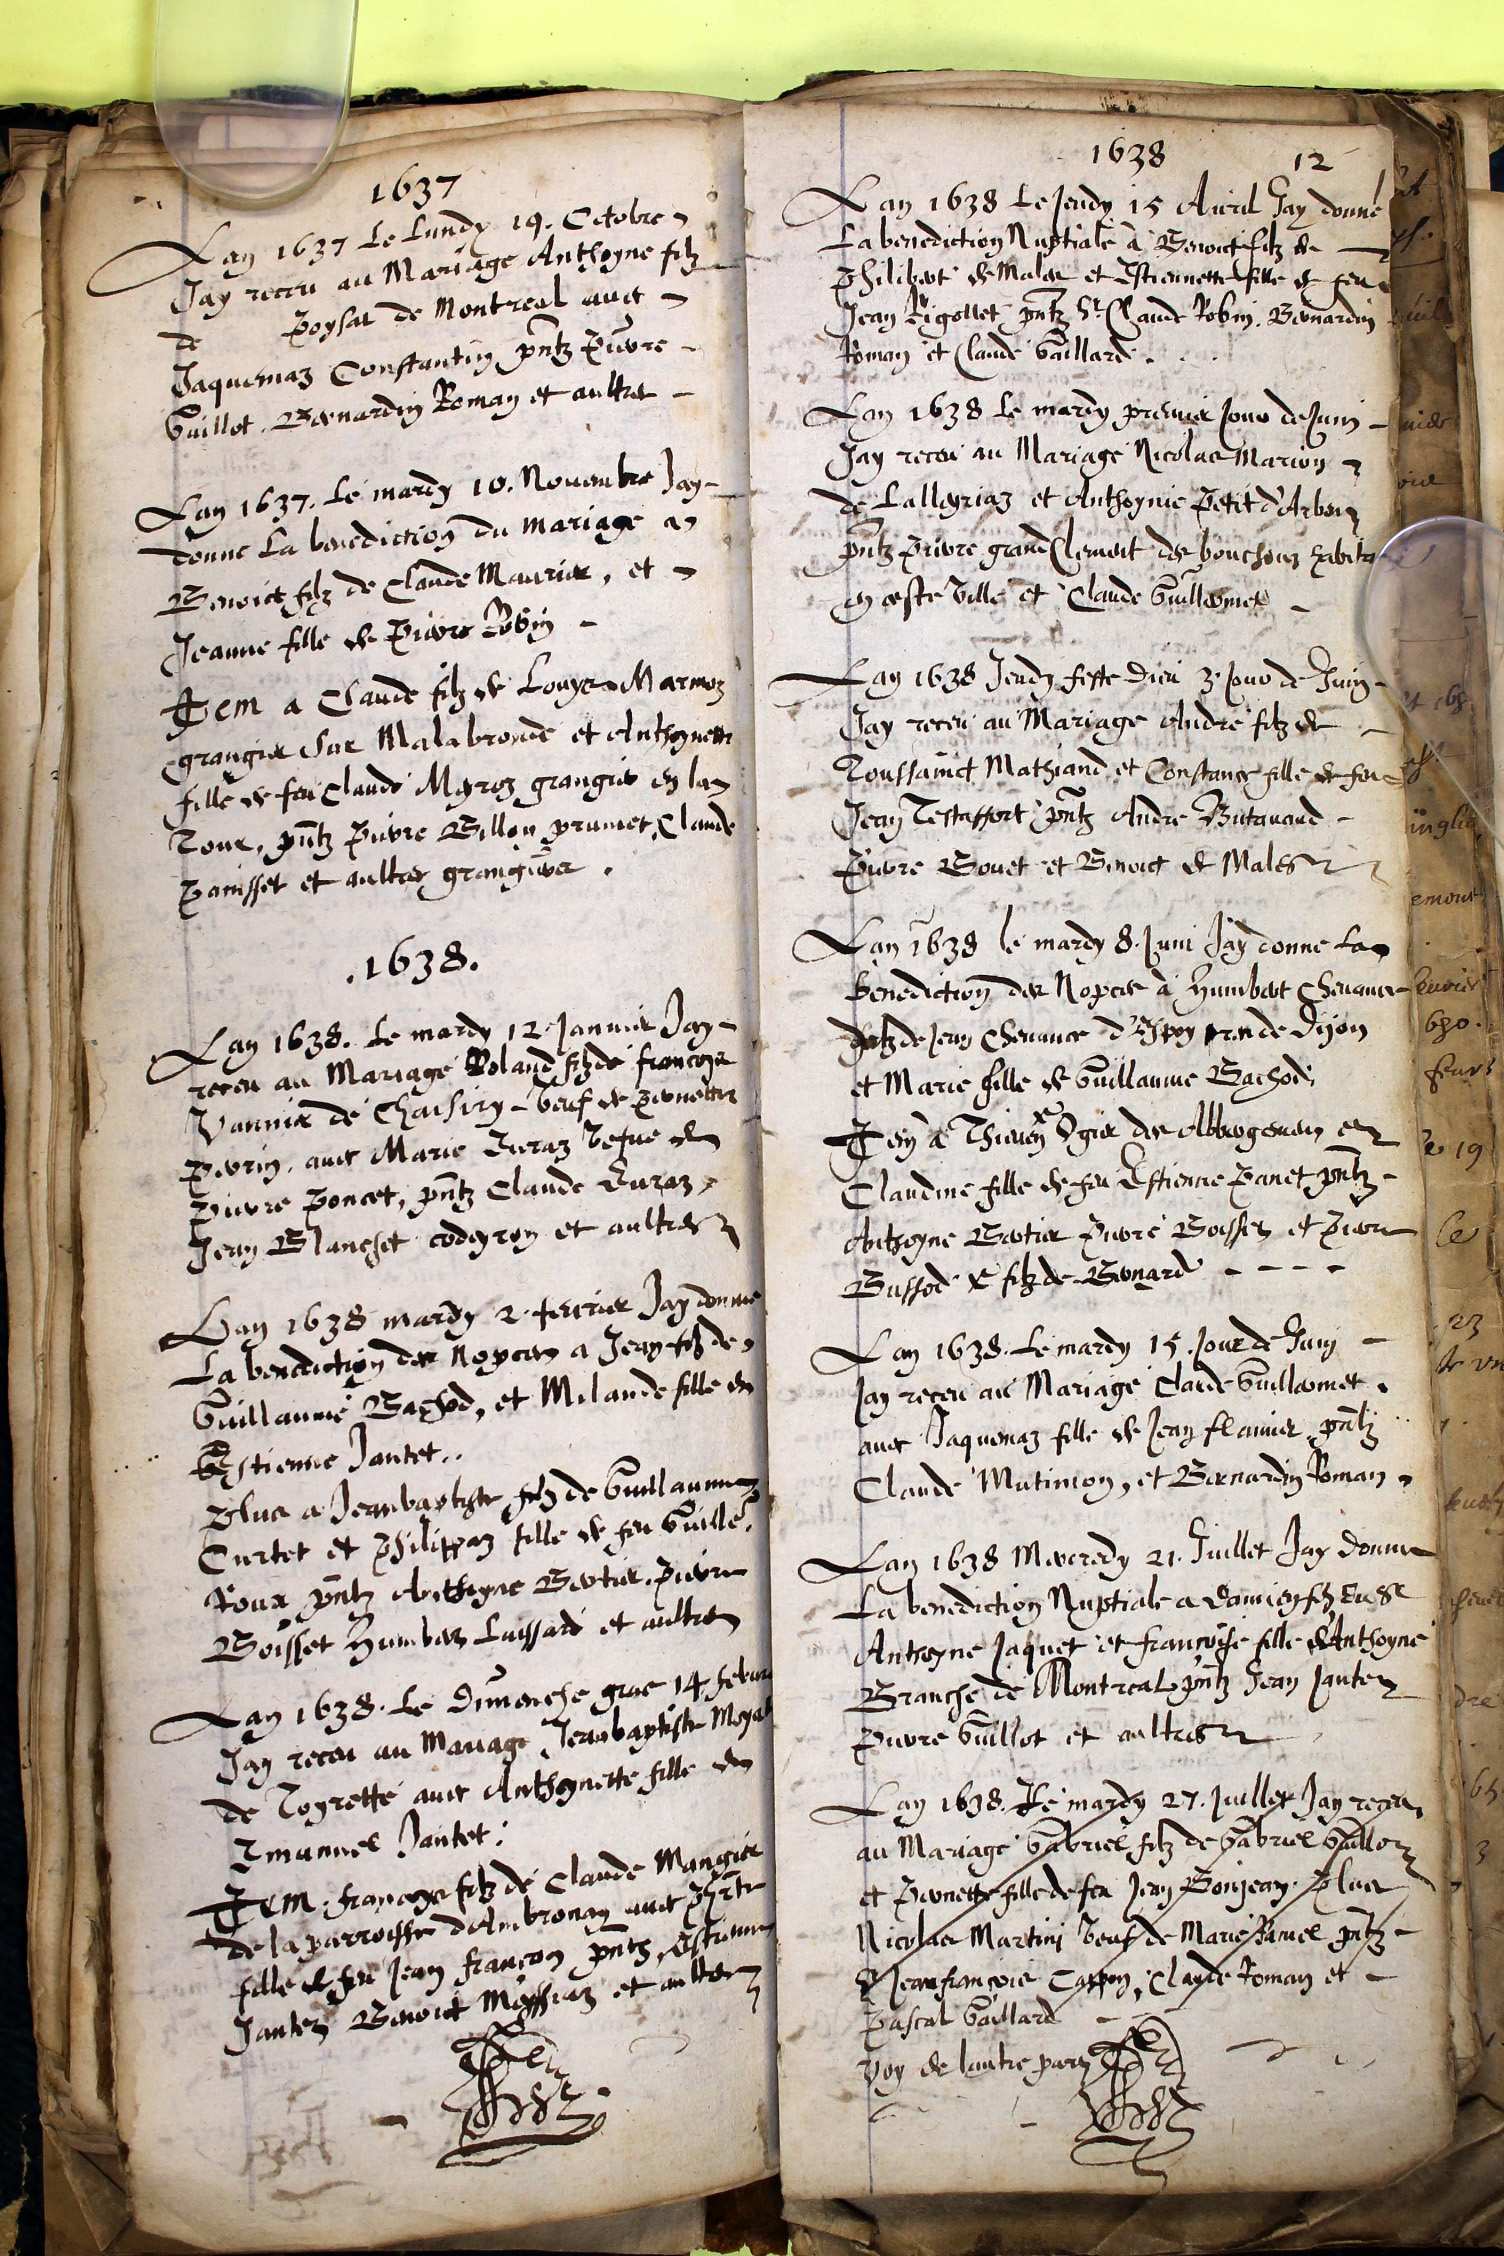 1637
Lan 1637 Le Lundy 19. Octobre
Jay receu au Mariage Anthoyne filz
de Poysat de Montreal avec
Jaquemaz Constantin pntz Pierre
Guillot. Bernardin Roman et aultres
Lan 1637. Le mardy 10. Novembre Jay
donne La benediction du mariage a
Benoict filz de Claude Maurier, et
Jeanne fille de Pierre Robin
Item a Claude filz de Louys Marmoz
grangier sur Malabronde et Anthoynette
fille de feu Claude Myroz grangier en la
Tour, pntz Pierre Billon prumet, Claude
Panisset et aultres grangiers.
.1638.
Lan 1638. Le mardy 12 Janvier Jay
receu au Mariage Roland filz de francoys
Vannier de Chaisiry vefs de Pernette
Perrin. avec Marie Duraz vefve de
Pierre Poncet, pntz Claude Duraz,
Jean Blanchet et aultres
Lan 1638 mardy 2. fevrier Jay donne
La benediction des Nopces a Jean filz de
Guillaume Bachod, et Milande fille de
Estienne Jantet..
Plus a Jeanbaptiste filz de Guillaume
Curtet et Philippaz fille de feu Guille.
Roux pntz Anthoyne Bertier. Pierre
Boisset Humbert Luissard et aultres
Lan 1638. Le Dimenche gras 14. febvrier
Jay receu au Mariage Jeanbaptiste
de Toyrette avec Anthoynette fille de
Emanuel Jantet.
Item. francoys filz de Claude Mangier
de la parroisse dAmbronay avec
fille de feu Jean françon pntz, Estienne
Jantet Benoict et aultres
1638 12
Lan 1638 Le Jeudy 15 Avril Jay donné
La benediction Nuptiale à Benoict filz de
Philibert de Males et Estiennette fille de feu
Jean Rigollet pntz Sr Claude Robin. Bernardin
Roman et Claude Gaillard.
Lan 1638 Le mardy premier Jour de Juin
Jay receu au Mariage Nicolas Marion
de Lalleyriaz et Anthoynie Petit d'Arben
pntz Pierre grand Clement des bouchoux habita
en ceste Ville et Claude Guillermet
Lan 1638 Jeudy feste Dieu 3. Jour de Juin
Jay receu au Mariage André filz de
Toussainct Mathiand et Constance fille de feu
Jean Testaffort pntz Andre Butavand
Pierre Bouet et Benoict de Males
Lan 1638 le mardy 8. Juin Jay donne La
benediction des Nopces à Humbert Chevance
filz de Jean Chevance d'Espoy de Dijon
et Marie fille de Guillaume Bachod
Item à Thieven Ogier des Abbergemen et
Claudine fille de feu Estienne Panet pntz
Anthoyne Bertier Pierre Boisset et Pierre
Bussod filz de Bernard
Lan 1638. Le mardy 15. Jour de Juin
Jay receu au Mariage Claude Guillermet
avec Jaquemaz fille de Jean flamier pntz
Claude Mutinion, et Bernardin Roman
Lan 1638 Mercredy 21. Juillet Jay donne
La benediction Nuptiale a Damien filz de Sr
Anthoyne Jaquet et françoise fille d'Anthoyne
Branche de Montreal pntz Jean Jantet
Pierre Guillot et aultres
Lan 1638. Le mardy 27. Juillet Jay receu
au Mariage Gabriel filz de Gabriel Guillot
et Pernette fille de feu Jean Bonjean. Plus
Nicolas Martin vefs de Marie Pamel pntz
Jean françois Cappon, Claude Roman et
Pascal Gaillard
Voy de lautre part